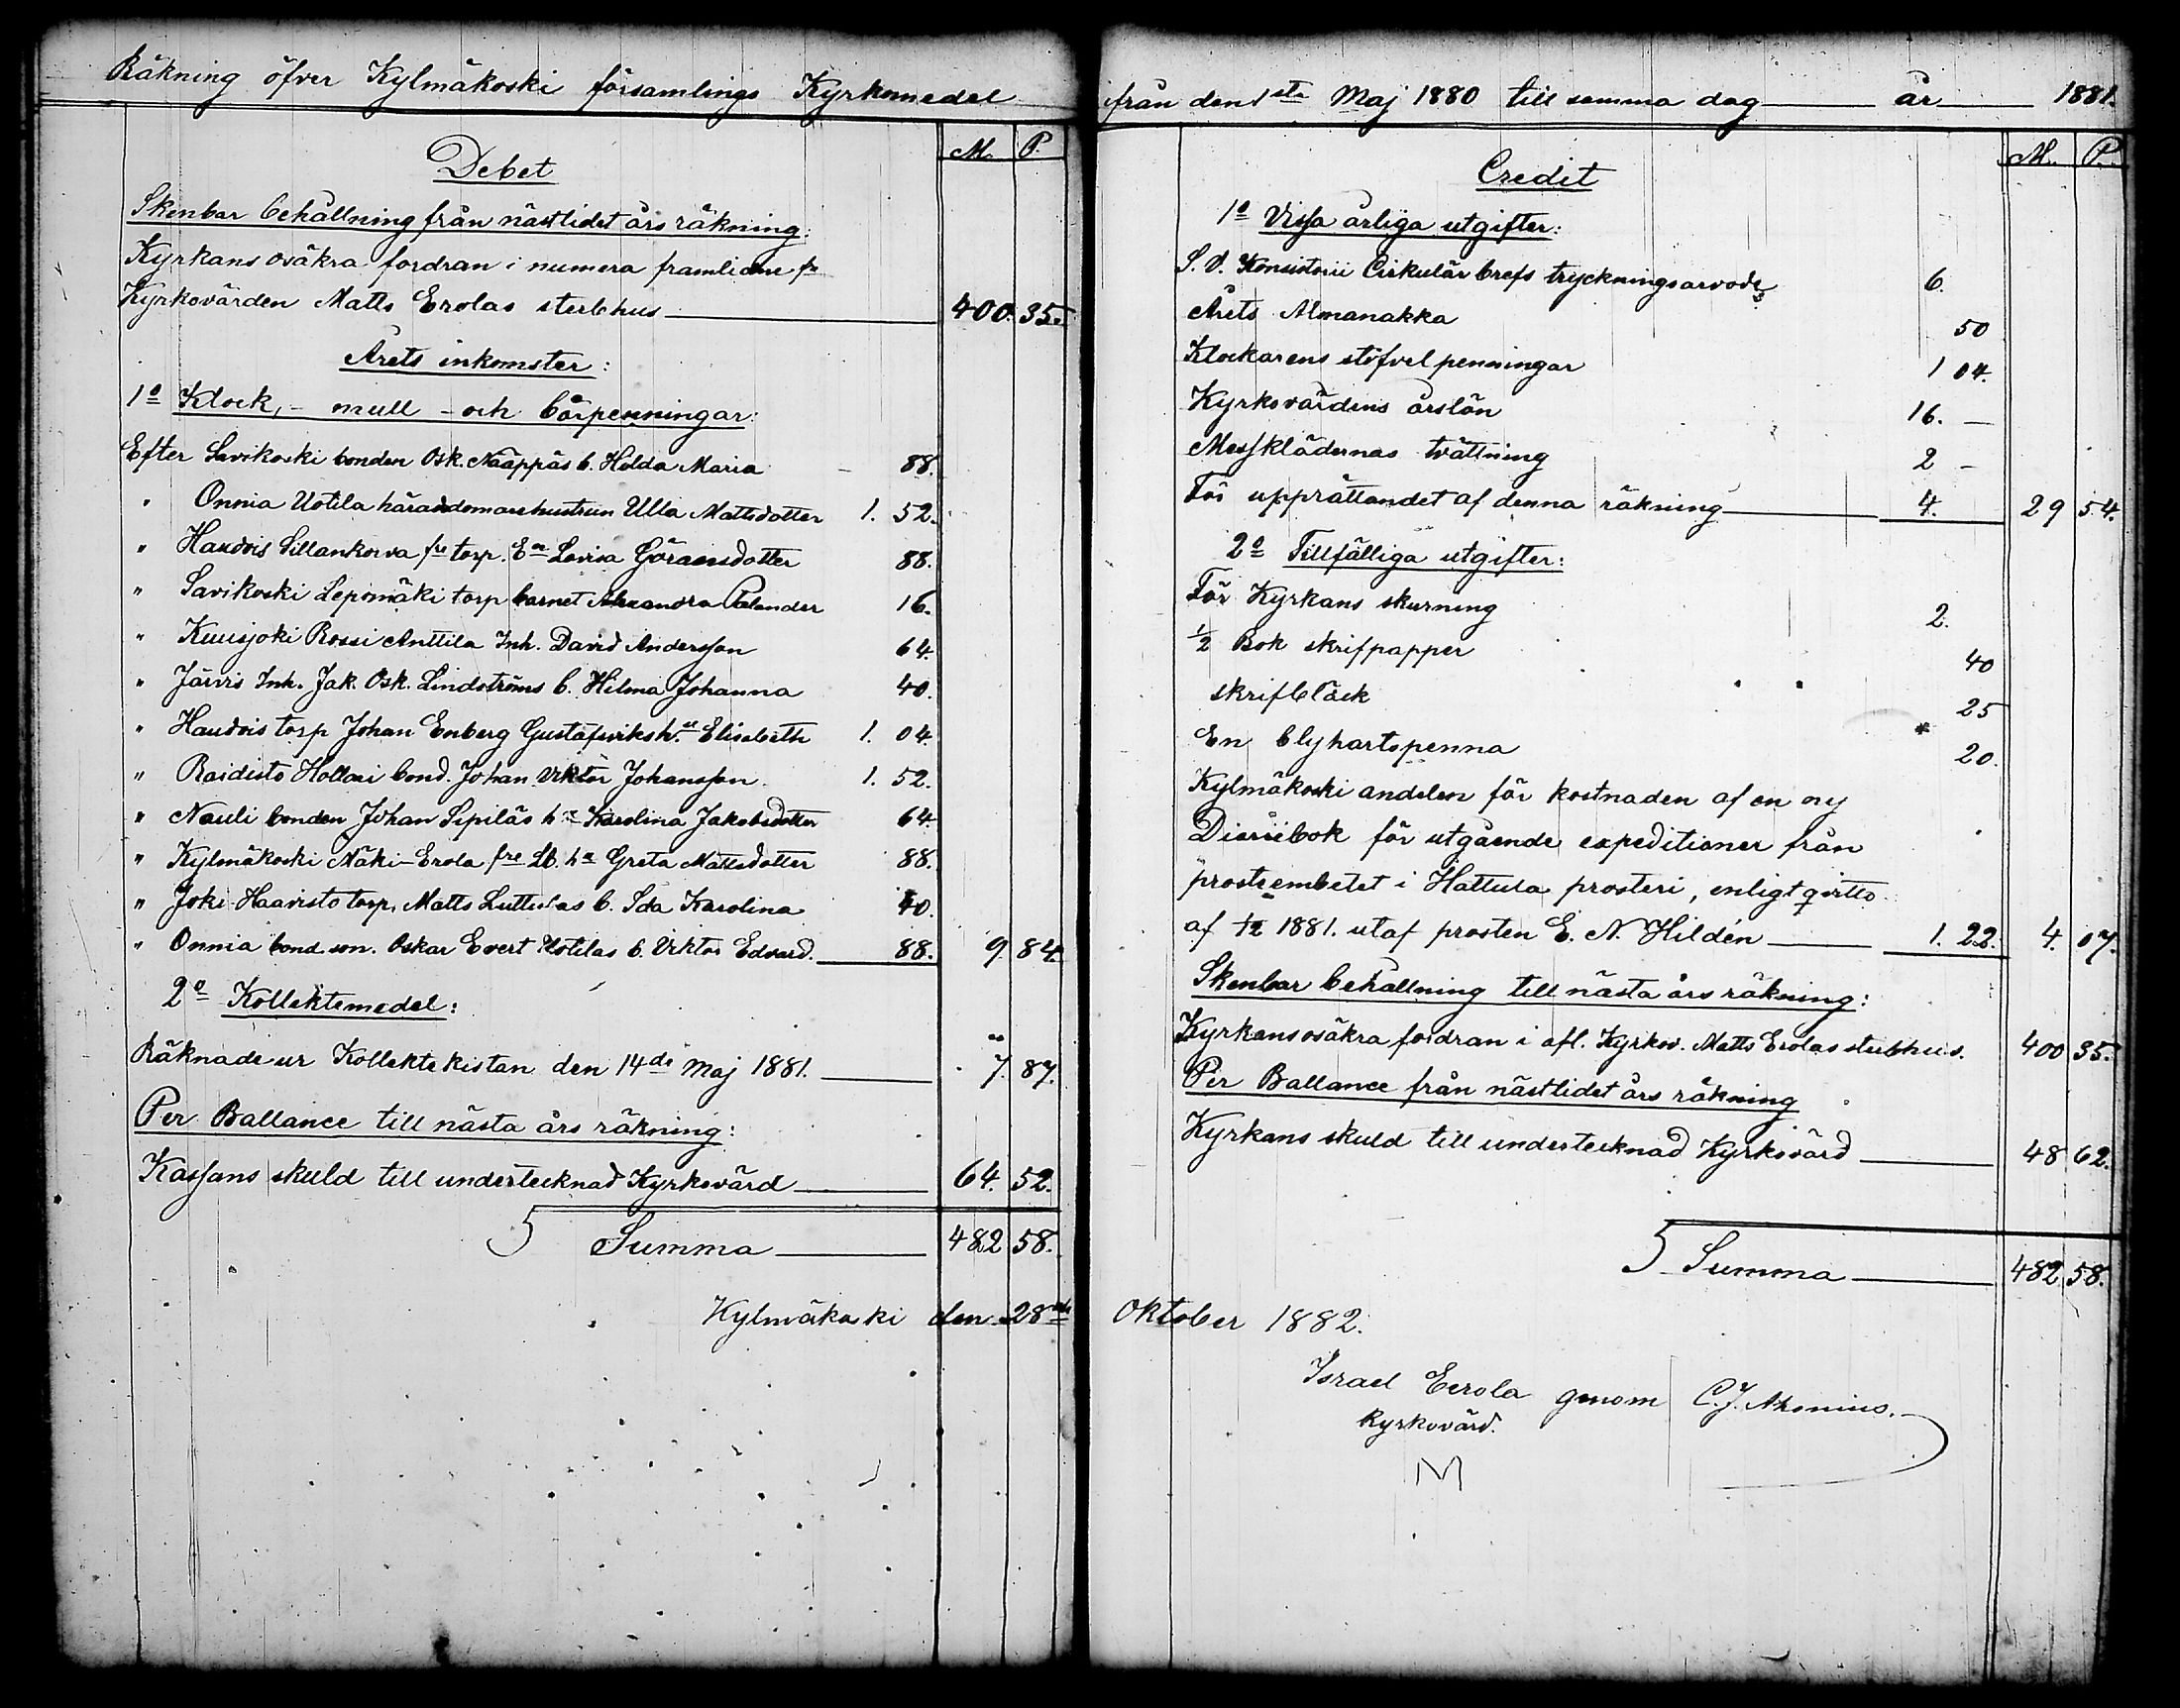 Räkning öfver Kylmäkoski församlings Kyrkomedel
M. P.
Debet
Skenbar behållning från nästlidet års räkning:
Kyrkans osäkra fordran i numera framlidne fr
Kyrkovärden Matts Erolas sterbhus 400. 35.
Årets inkomster:
1o Klock,- mull- och bårpenningar:
Efter Savikoski bonden Osk. Nääppäs b. Hilda Maria 88.
" Onnia Uotila häradsdomarehustrun Ulla Mattsdotter 1. 52.
" Haudois Sillankorva fre torp. Ea Lovisa Göransdotter 88.
" Savikoski Lepomäki torp barnet Alexandra Palander 16.
" Kuusjoki Rossi Anttila Inh. David Andersson 64.
" Järvis Inh. Jak. Osk. Lindströms b. Hilma Johanna 40.
" Haudois torp Johan Enberg Gustafsviks h. Elisabeth 1. 04.
" Raidisto Hollari bond. Johan Viktor Johansson 1. 52.
" Nauli bonden Johan Sipiläs h. Karolina Jakobsdotter 64.
" Kylmäkoski Näki-Erola fre Lb. ha Greta Mattsdotter 88.
" Joki-Haavisto torp. Matts b. Ida Karolina 40.
" Onnia bond. son. Oskar Evert Uotilas b. Viktor Edvard. 88. 9. 84.
2o Kollektemedel:
Räknade ur Kollektekistan den 14de Maj 1881. 7. 87.
Per Ballance till nästa års räkning:
Kassans skuld till undertecknad Kyrkovärd 64. 52.
Summa 482 58.
Kylmäkoski den 28de
från den 1sta Maj 1880 till samma dag år 1881.
M. P.
Credit
1o Vissa årliga utgifter:
S. V. Konsistorii Cirkulär brefs tryckningsarvode 6.
Årets Almanakka 50
Klockarens stöfvelpenningar 1 04.
Kyrkovärdens årslön 16. —
Messklädernas tvättning 2 —
För upprättandet af denna räkning 4. 29 54.
2o Tillfälliga utgifter:
För Kyrkans skurning 2.
1/2 Bok skrifpapper 40
skrifbläck 25
En blyhartspenna 20.
Kylmäkoski andelen för kostnaden af en ny
Diariibok för utgående expeditioner från
prostembetet i Hattula prosteri, enligt qvitto
af 1881. utaf prosten E. N. Hildén 1. 22. 4. 07.
Skenbar behållning till nästa års räkning:
Kyrkans osäkra fordran i afl. Kyrkov. Matts Erolas sterbhus. 400 35.
Per Ballance från nästlidet års räkning
Kyrkans skuld till undertecknad Kyrkovärd 48 62.
Summa 482 58.
Oktober 1882.
Israel Eerola genom C. J.
Kyrkovärd.